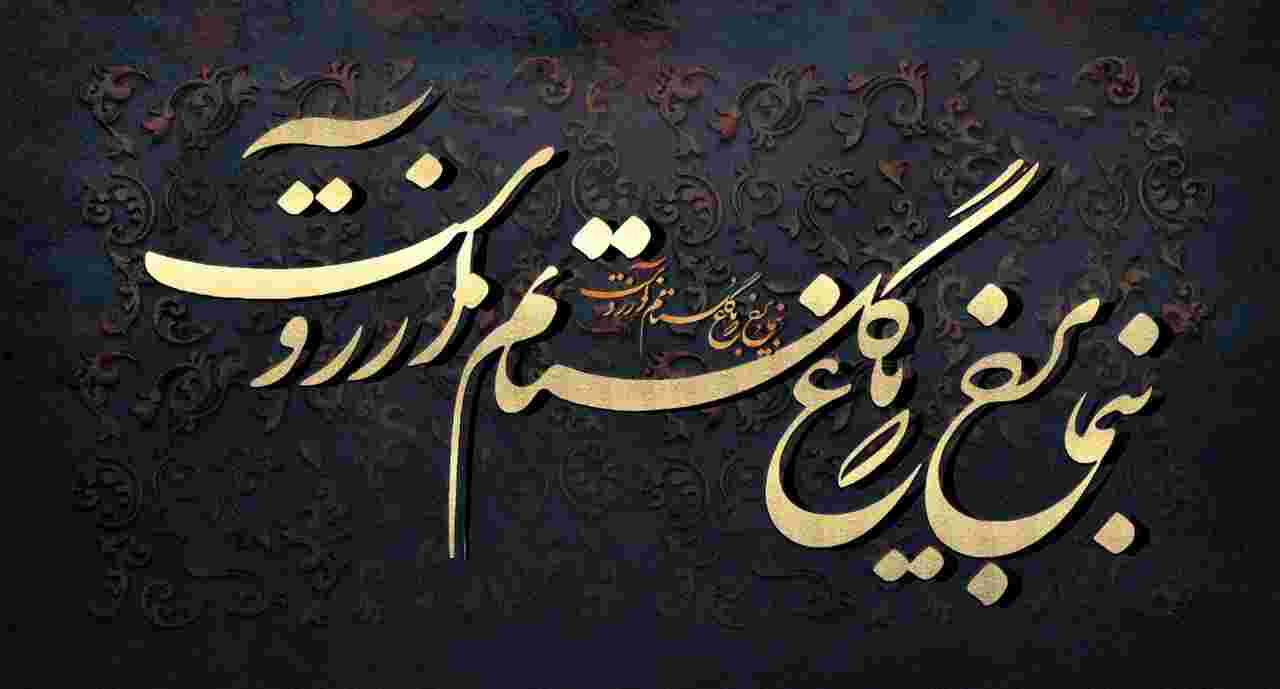 بنمای رخ که باغ و گلستانم آرزوست
بنمای رخ که باغ و گلستانم آرزوست